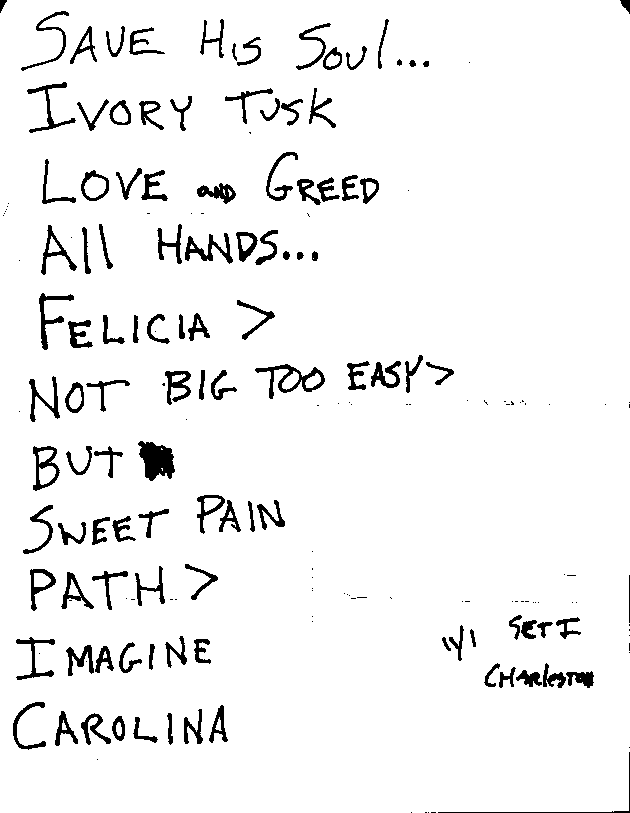 SAVE HIS SOUL...
IVORY TUSK
LOVE AND GREED
All HANDS...
FELICIA >
NOT BIG TOO EASY >
BUT
SWEET PAIN
PATH >
IMAGINE
CAROLINA
11/1 SET I
CHARLESTON